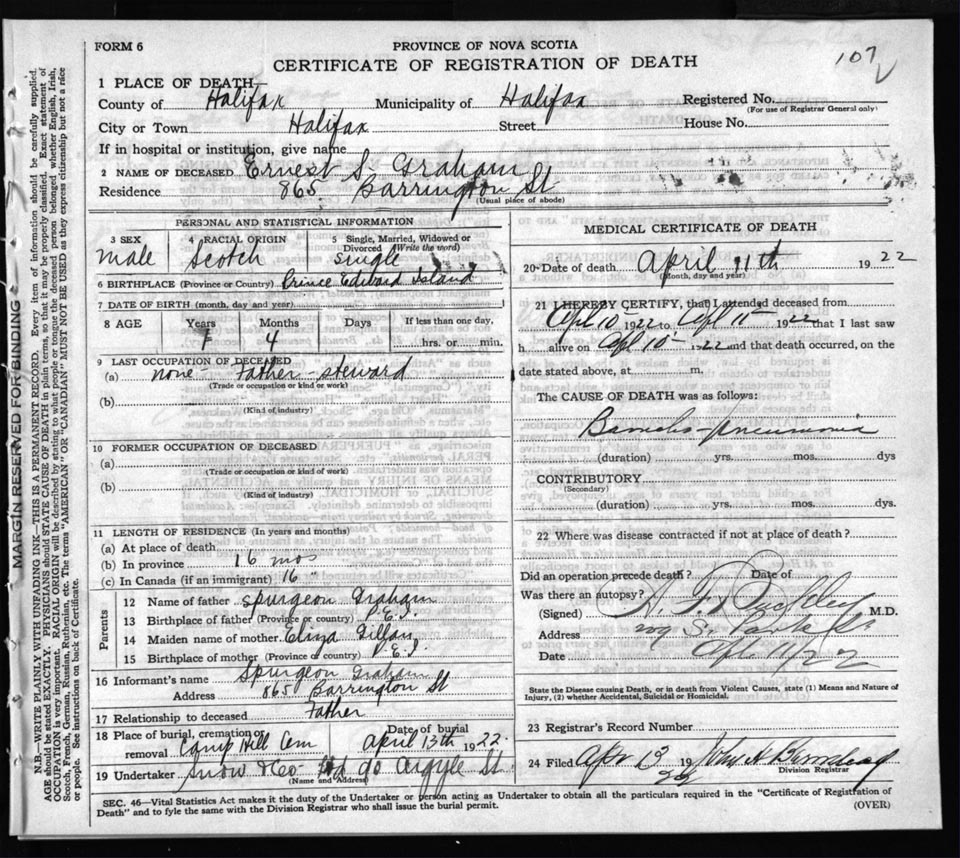 FORM 6
PROVINCE OF NOVA SCOTIA
CERTIFICATE OF REGISTRATION OF DEATH
107
1 PLACE OF DEATH—
County of Halifax Municipality of Halifax Registered No.
(For use of Registrar General only)
City or Town Halifax Street House No.
If in hospital or institution, give name
2 NAME OF DECEASED Ernest S. Graham
Residence 865 Barrington St
(Usual place of abode)
PERSONAL AND STATISTICAL INFORMATION
3 SEX 4 RACIAL ORIGIN 5 Single, Married, Widowed or
Divorced (Write the word)
male Scotch single
6 BIRTHPLACE (Province or Country) Prince Edward Island
7 DATE OF BIRTH (month, day and year)
8 AGE Years Months Days If less than one day,
1 4 hrs. or min.
9 LAST OCCUPATION OF DECEASED
(a) none - Father - steward
(Trade or occupation or kind of work)
(b)
(Kind of industry)
10 FORMER OCCUPATION OF DECEASED
(a)
(Trade or occupation or kind of work)
(b)
(Kind of industry)
11 LENGTH OF RESIDENCE (In years and months)
(a) At place of death
(b) In province 16 mos
(c) In Canada (if an immigrant) 16 "
Parents
12 Name of father Spurgeon Graham
13 Birthplace of father (Province or country) P.E.I.
14 Maiden name of mother Eliza Gillan
15 Birthplace of mother (Province or country) P.E.I.
16 Informant's name Spurgeon Graham
Address 865 Barrington St
17 Relationship to deceased Father
18 Place of burial, cremation or Date of burial
removal Camp Hill Cem April 13th 1922.
19 Undertaker Snow & Co 90 Argyle St
(Name and Address)
MEDICAL CERTIFICATE OF DEATH
20 Date of death April 11th 1922
(Month, day and year)
21 I HEREBY CERTIFY, that I attended deceased from
Apl 10 1922 to Apl 11 1922 that I last saw
h alive on Apl 10 1922 and that death occurred, on the
date stated above, at m.
The CAUSE OF DEATH was as follows:
Broncho-pneumonia
(duration) yrs. mos. dys
CONTRIBUTORY
(Secondary)
(duration) yrs. mos. dys.
22 Where was disease contracted if not at place of death?
Did an operation precede death? Date of
Was there an autopsy?
(Signed) M.D.
Address S. Park St
Date Apl 11/22
State the Disease causing Death, or in death from Violent Causes, state (1) Means and Nature of
Injury, (2) whether Accidental, Suicidal or Homicidal.
23 Registrar's Record Number
24 Filed Apr 13 19 22 John
Division Registrar
SEC. 46—Vital Statistics Act makes it the duty of the Undertaker or person acting as Undertaker to obtain all the particulars required in the "Certificate of Registration of
Death" and to fyle the same with the Division Registrar who shall issue the burial permit.
(OVER)
MARGIN RESERVED FOR BINDING
N.B.—WRITE PLAINLY WITH UNFADING INK—THIS IS A PERMANENT RECORD. Every item of information should be carefully supplied.
AGE should be stated EXACTLY. PHYSICIANS should STATE CAUSE OF DEATH in plain terms, so that it may be properly classified. Exact statement of
OCCUPATION is very important. RACIAL ORIGIN will be described by stating to what people or tongue the deceased person belonged whether English, Irish,
Scotch, French, German, Russian, Ruthenian, etc. The terms "AMERICAN" OR "CANADIAN" MUST NOT BE USED as they express citizenship but not a race
or people. See instructions on back of Certificate.